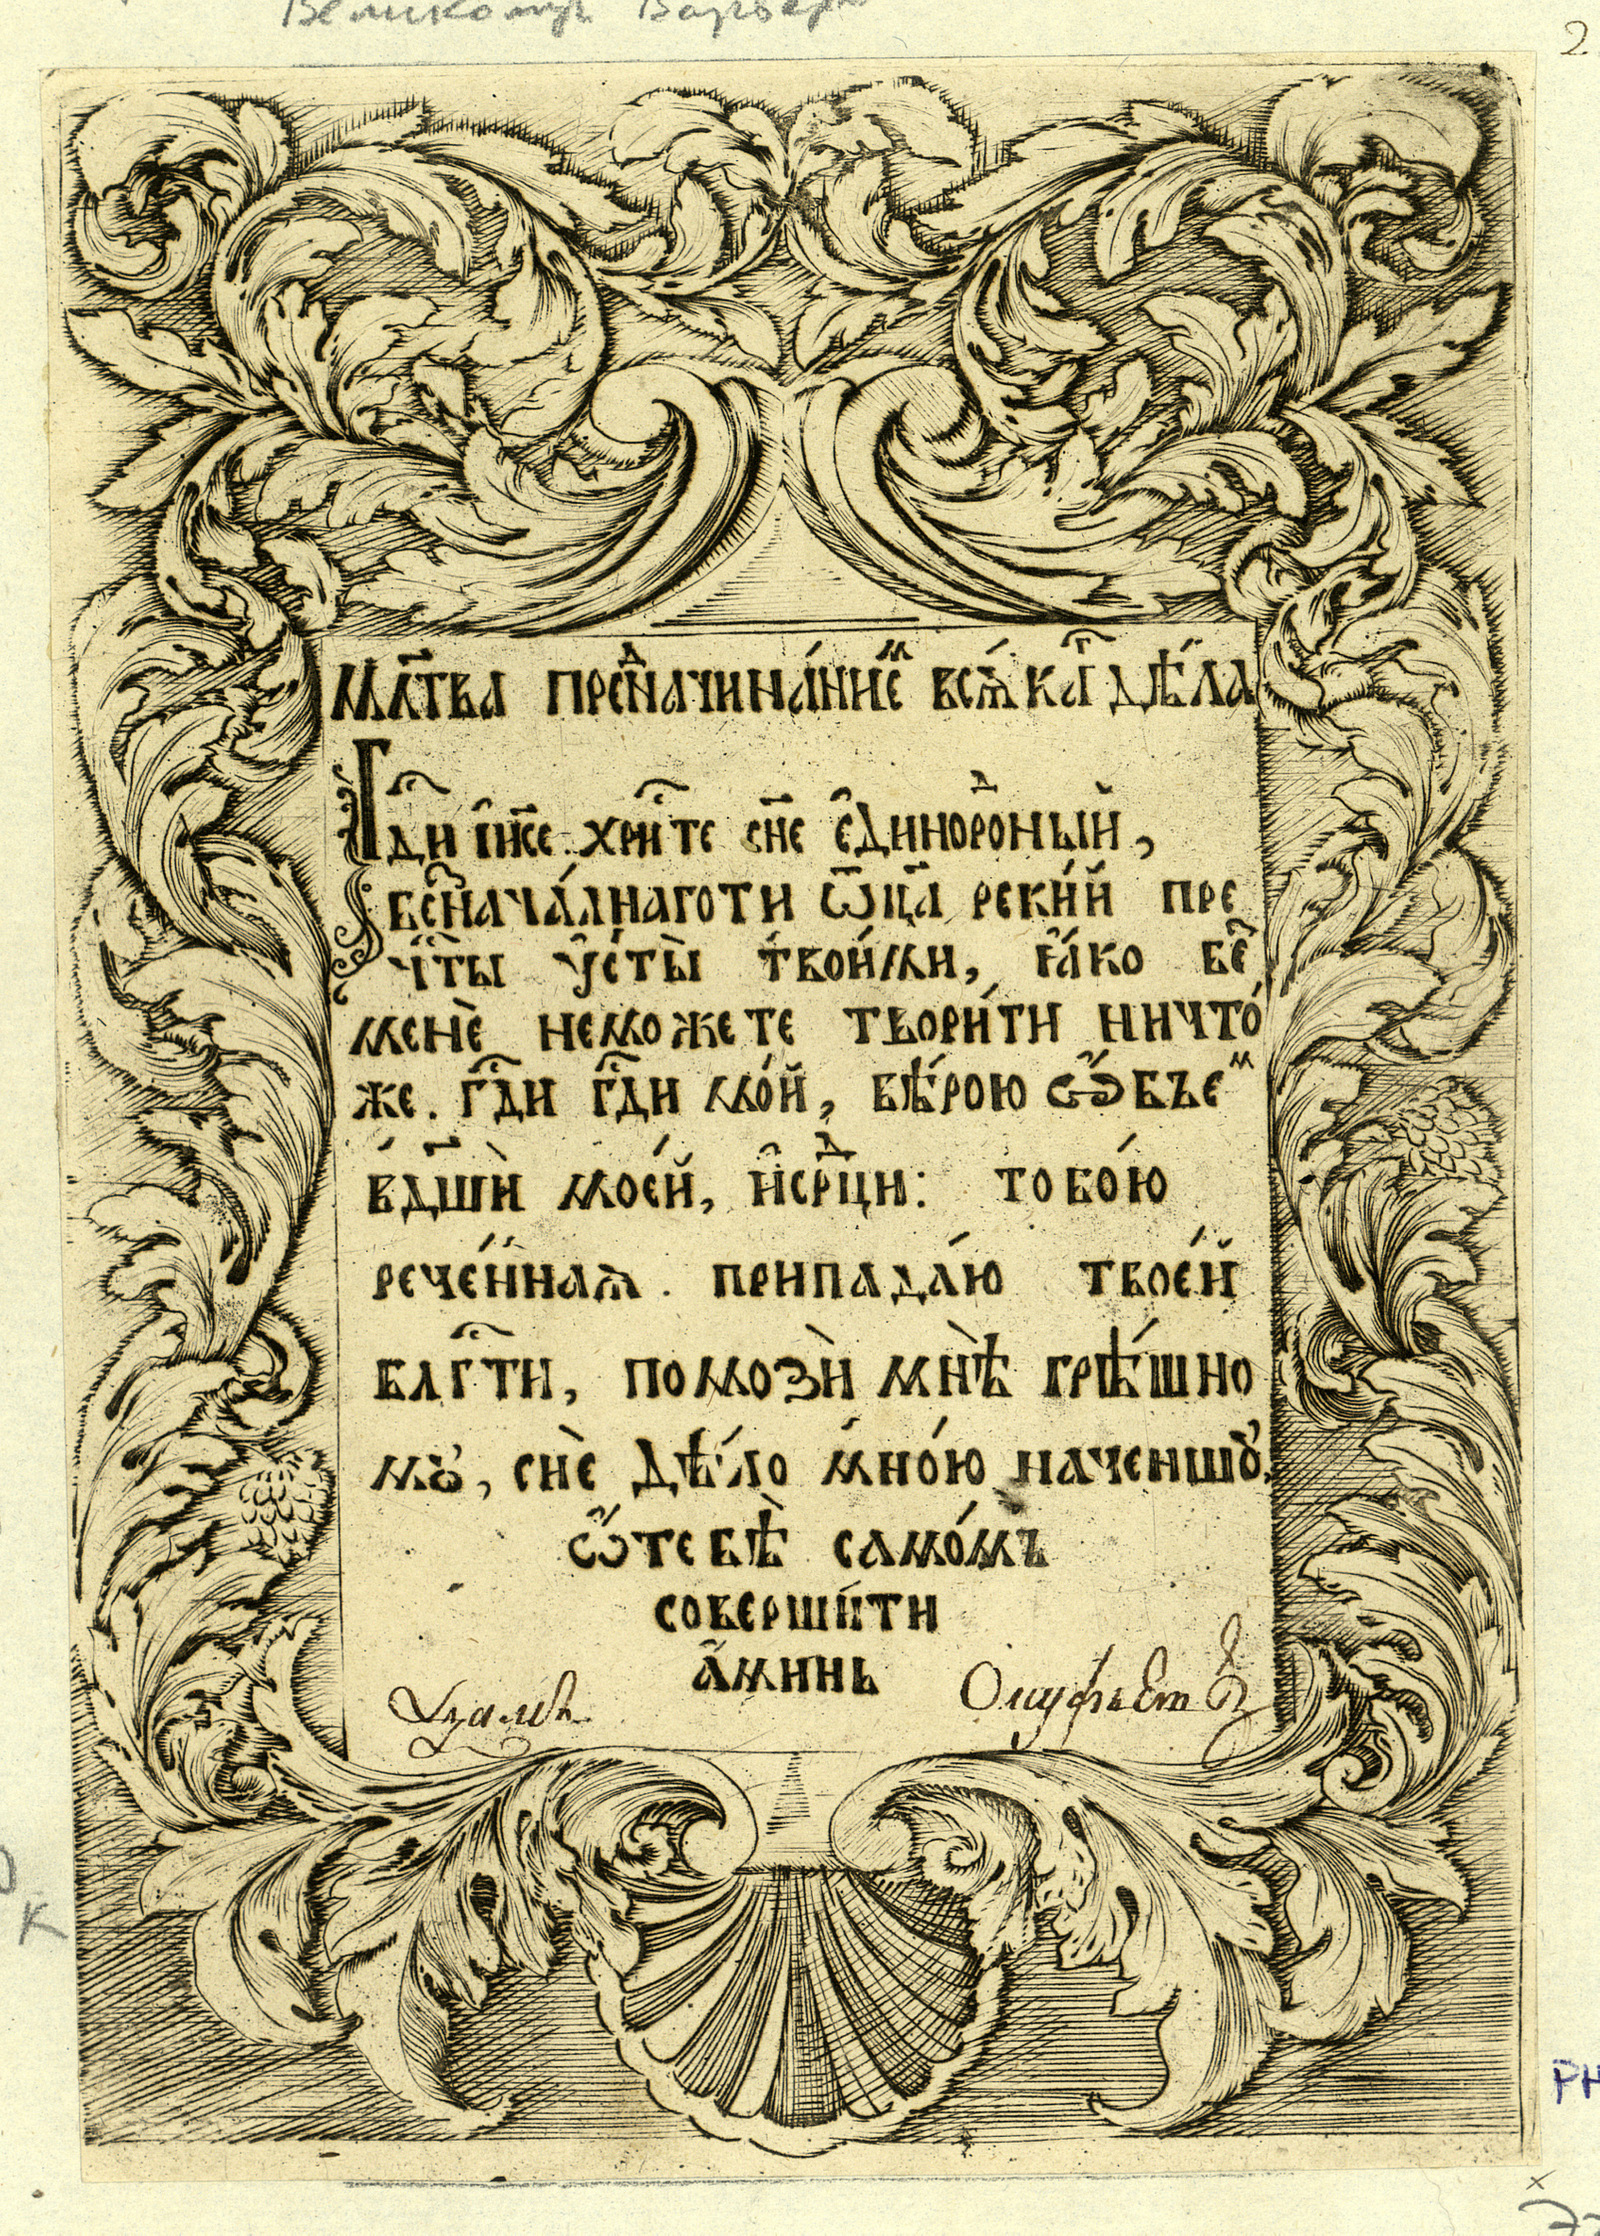 Великомуч Варвары
2
мл҃тва преⷣначина́ниеⷨ всѧ́каⷢ҇ дѣ́ла
Гдⷭ҇и і҆и҃се хрⷭ҇те сн҃е є҆диноро́ⷣный,
бе҆ⷥнача́лнаготи ѿц҃а реки́й пре
чⷭ҇ты ᲂу҆сты̀ твои́ми, ꙗ҆́ко беⷥ
менѐ неможете твори́ти ничто́
же. гдⷭ҇и гдⷭ҇и мо́й, вѣ́рою ѽбъеⷨ
вдш҃ѝ мое́й, и҆срⷣцы: тобо́ю
рече́ннаѧ. припада́ю твое́й
блгⷭ҇ти, помозѝ мнѣ̀ грѣ́шно
мꙋ, снѐ дѣ́ло мно́ю наченшꙋ́,
ѽтебѣ̀ само́мъ
соверши́ти
а҆́минь
К
РН
х